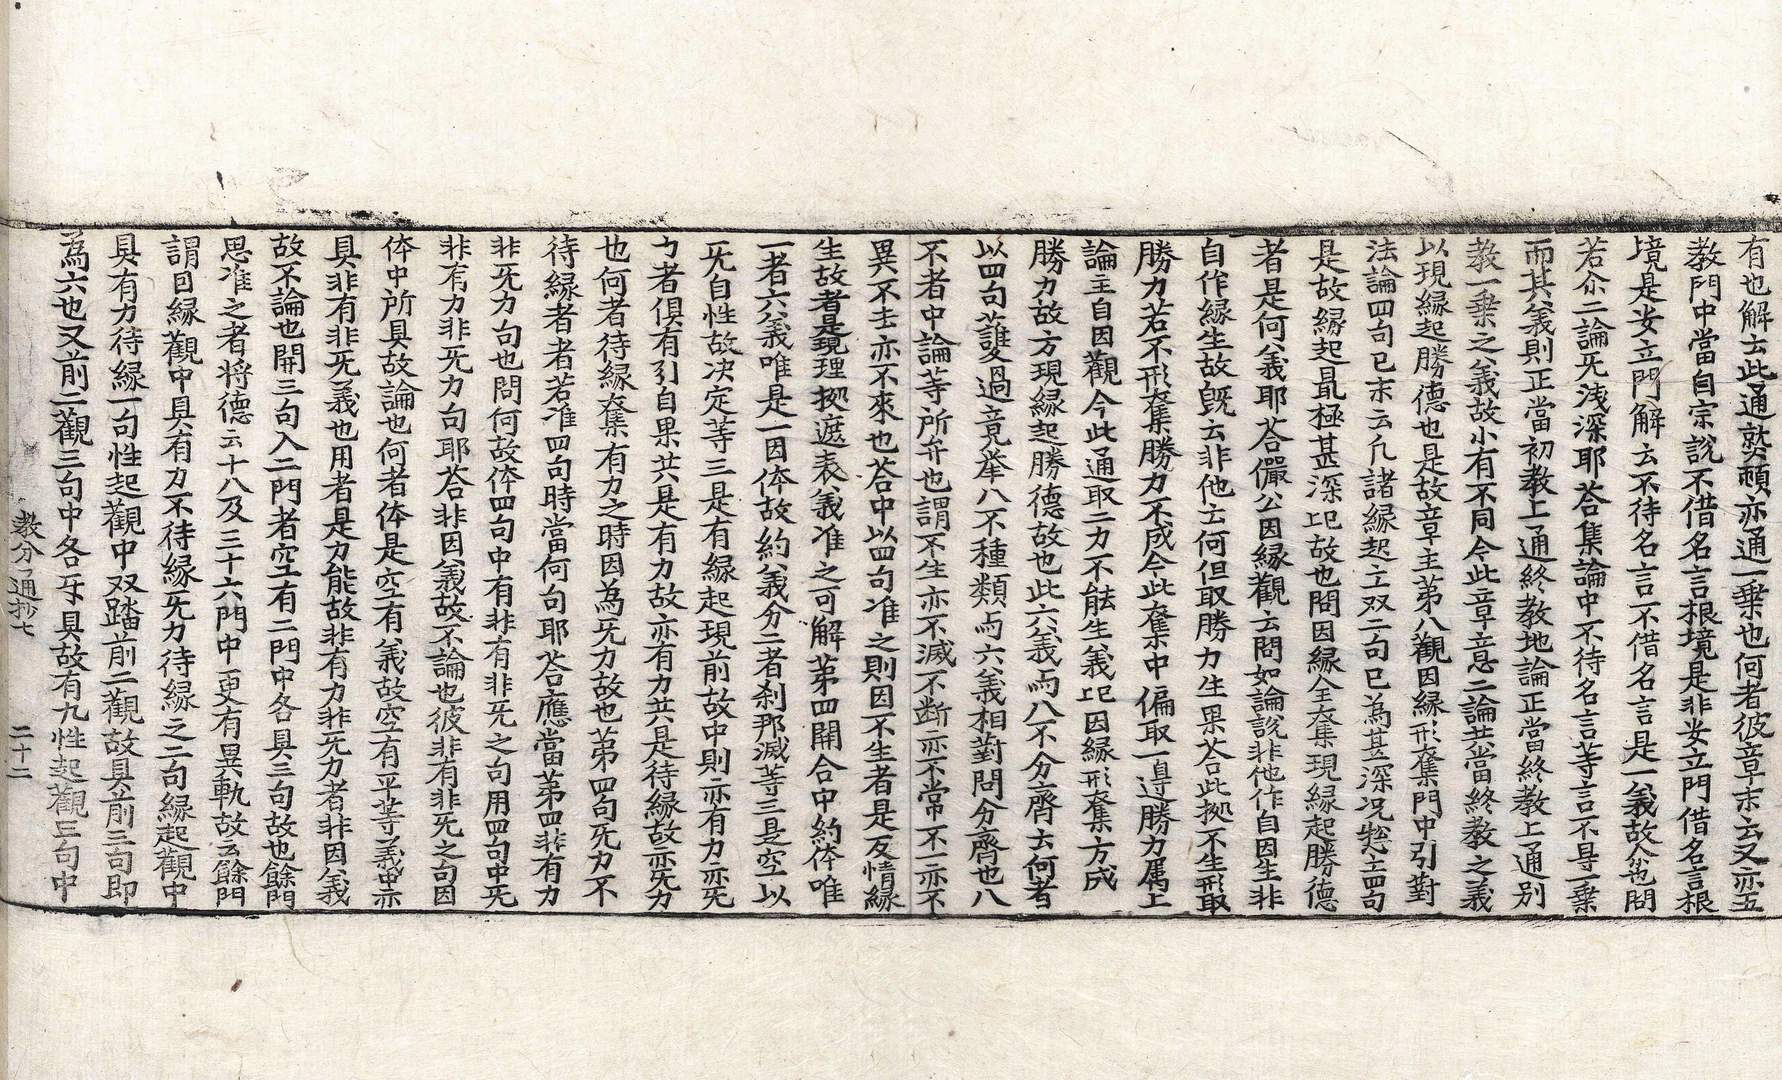 有也解云此通就頓亦通一乗也何者彼章末云又亦五
教門中當自宗說不借名言根境是非安立門借名言根
境是安立門解云不待名言不借名言是一義故尒也問
若尒二論旡浅深耶荅集論中不待名言等言不㝵一乗
而其義則正當初教上通終教地論正當終教上通別
教一乗之義故小有不同今此章意二論共當終教之義
以現縁起勝德也是故章主第八觀因縁形奪門中引對
法論四句已末云凢諸縁起立双二句已為甚深况揔主四句
是故縁起最極甚深㘴故也問因縁全奪集現縁起勝德
者是何義耶荅儼公因縁觀云問如論說非他作自因生非
自作縁生故旣云非他云何但取勝力生果荅此㨿不生形取
勝力若不形奪勝力不成今此奪中偏取一邊勝力属上
論主自因觀今此通取二力不能生義㘴因縁形奪集方成
勝力故方現縁起勝德故也此六義与八不分齊云何者
以四句護過竟举八不種類与六義相對問分齊也八
不者中論等所弁也謂不生亦不滅不断亦不常不一亦不
異不去亦不來也荅中以四句准之則因不生者是反情縁
生故者是現理㨿遮表義准之可解第四開合中約体唯
一者六義唯是一因体故約義分二者刹那滅等三是空以
旡自性故决定等三是有縁起現前故中則亦有力亦旡
力者俱有引自果共是有力故亦有力共是待縁故亦旡力
也何者待縁奪集有力之時因為旡力故也第四句旡力不
待縁者者若准四句時當何句耶荅應當第四非有力
非旡力句也問何故体四句中有非有非旡之句用四句中旡
非有力非旡力句耶荅非因義故不論也彼非有非旡之句因
体中所具故論也何者体是空有義故空有平等義中亦
具非有非旡義也用者是力能故非有力非旡力者非因義
故不論也開三句入二門者空有二門中各具三句故也餘門
思准之者将德云十八及三十六門中更有异軌故云餘門
謂因縁觀中具有力不待縁旡力待縁之二句縁起觀中
具有力待縁一句性起觀中双踏前二觀故具前三句即
為六也又前二觀三句中各牙具故有九性起觀三句中
教分通抄七　二十二